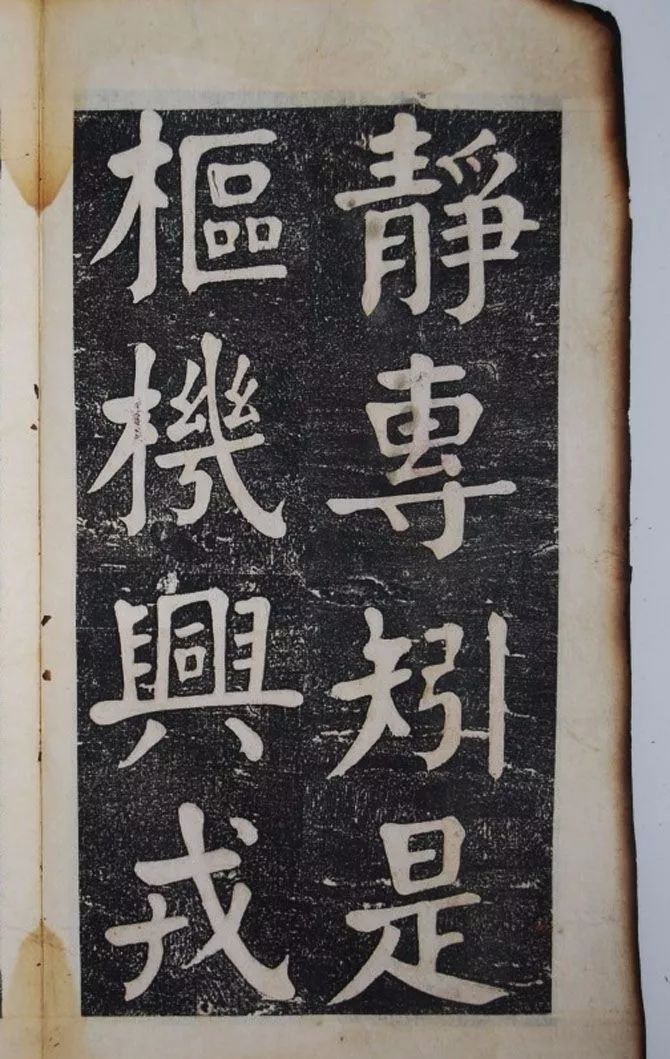 靜專矧是
樞機興戎